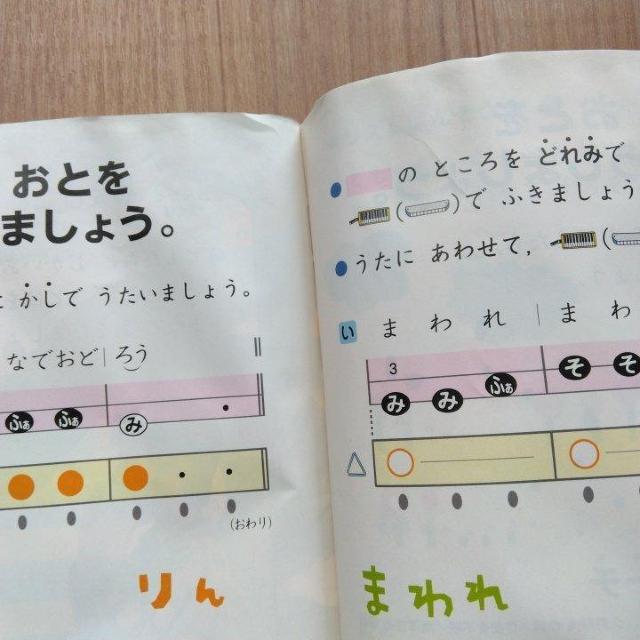 おとを
ましょう。
かしで うたいましょう。
なでおど ろう
ふぁ ふぁ み
(おわり)
りん
の ところを どれみで
( )で ふきましょう
うたに あわせて,
い ま わ れ ま わ
3
み み ふぁ そ そ
まわれ